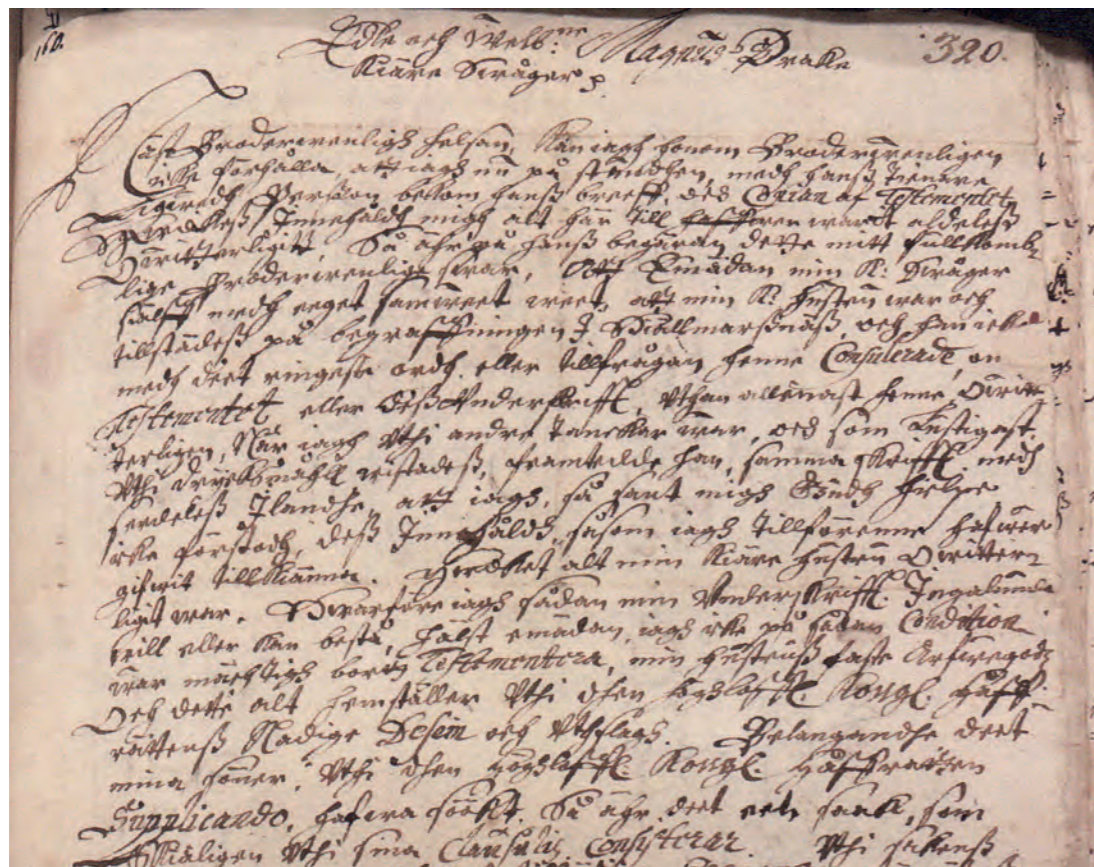 160.
Edle och Welb:ne Magnus Drake
320.
Kiäre Swåger
Näst Broderwenligh helsan, Kan iagh honom Broderwenligen
icke förhålla, att iagh nu på stundhen, medh hanß Tienare
Sigredh Perßson bekom hanß breeff, och Copian af Testementet,
Hwilkeß Innehåldh migh alt här till war aldeleß
Owitterligit. Så ähr på hanß begäran dette mitt fullkomb-
lige Broderwenlige swar, Att Emädan min K: Swåger
sielff medh eeget samweet weet, att min K: hustru war och
tillstädeß på begraffningen J Hiällmarßnäß, och han icke
medh deet ringeste ordh eller tillfrågan henne Consulerade, om
Testementet eller deß Underskrifft, Uthan allenast henne Owit-
terligen, När iagh Uthi andre Tanckar war, och som lustigast
Uthi dryckßmåhll wistadeß, framtedde han samma skrifft, medh
serdeleß Jlandhe, att iagh, så sant migh Gudh hielpe
icke förstodh, deß Innehåldh, såsom iagh tillförenne hafwer
gifwit tillkiänna. Hwilket alt min Kiäre hustru Owitter-
ligit war. Hwarföre iagh sådan min Underskrifft Ingalunda
will eller kan bestå, hälst emädan iagh icke på sådan Condition
war mächtigh bort Testementera, min hustruß faste Arfwegodz
Och dette alt hemställer Uthi dhen höghloffl. Kongl. Hoff-
rättenß Nådige och Uthslagh. Belangandhe deet
mina söner, Uthi dhen höghloffl. Kongl. Hoffrätten
Supplicando, hafwa söökt. Så ähr deet een saak, som
skiäligen Uthi sina Clausulis Consysterar. Uthi sakenß